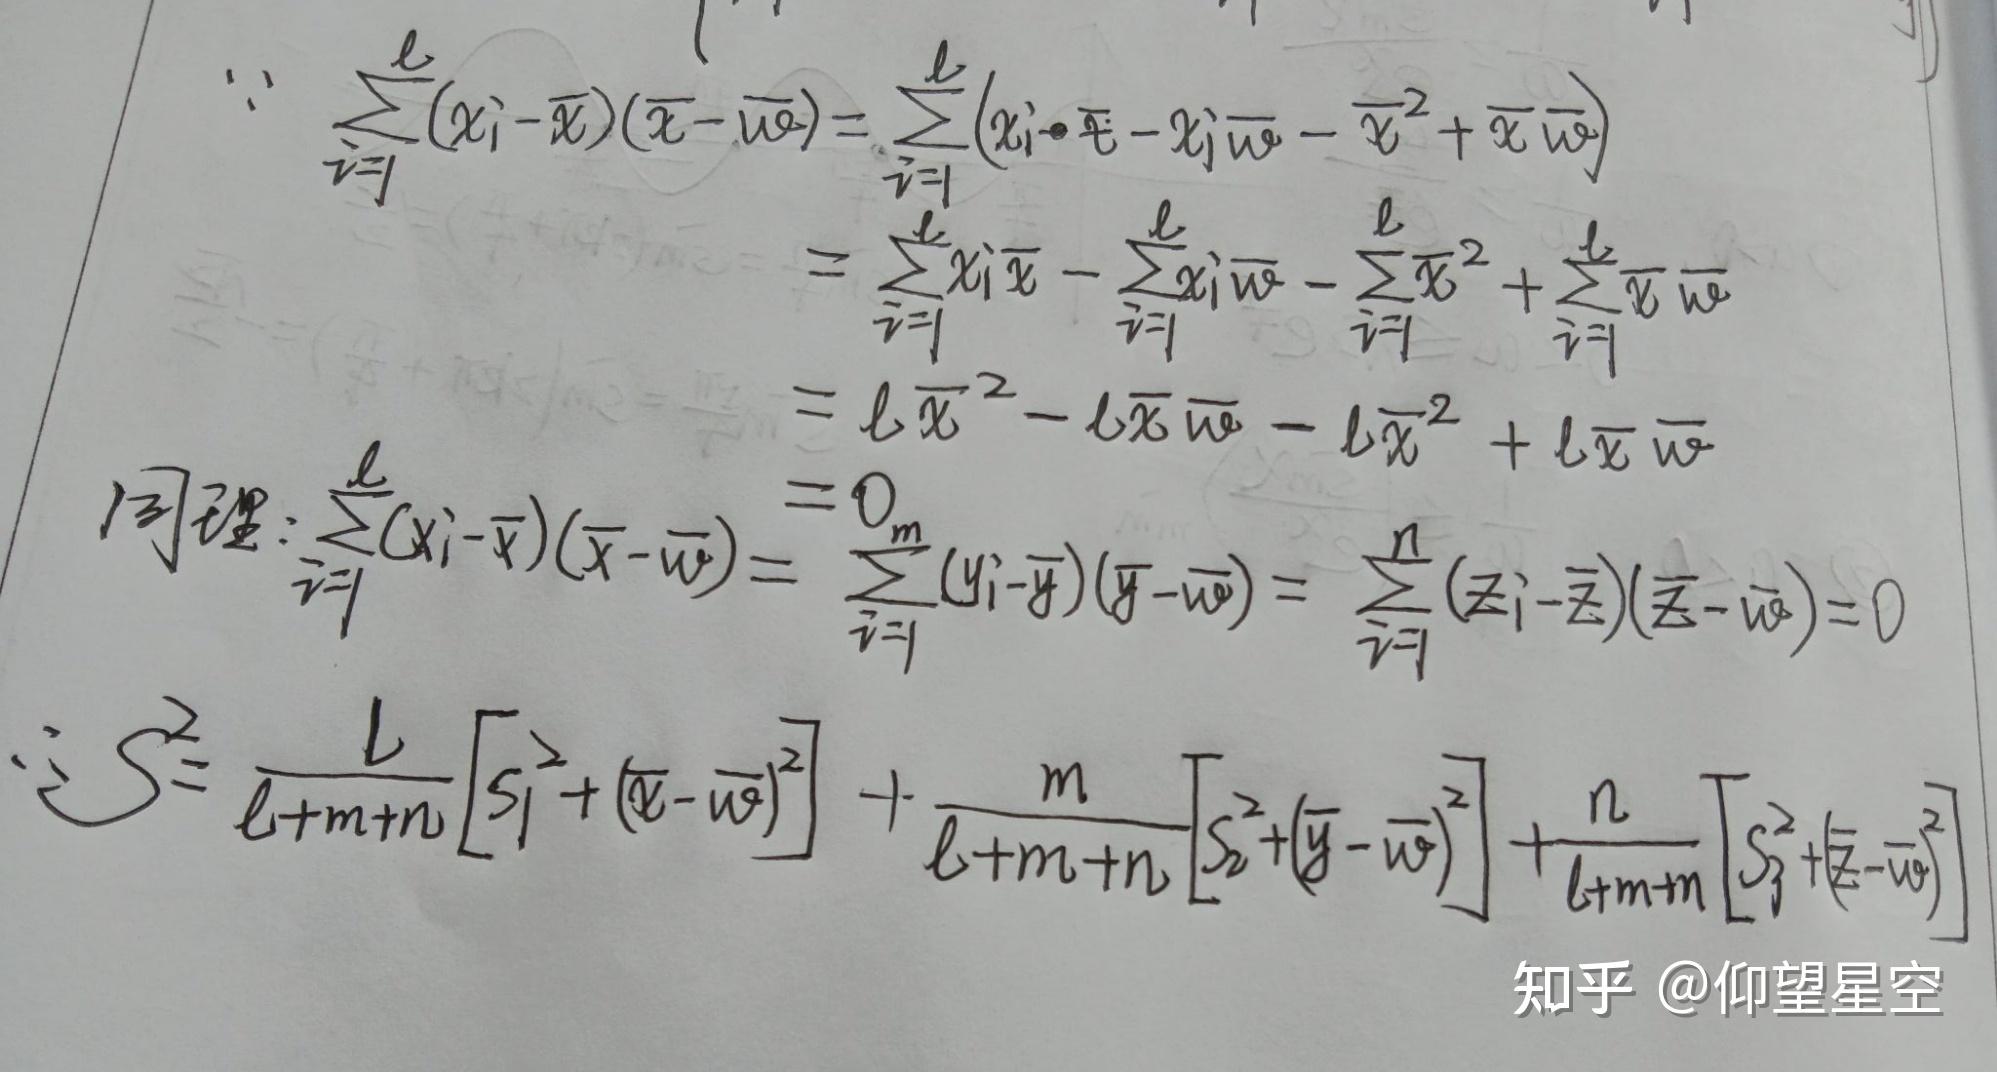 ∵ $\sum_{i=1}^{l}(x_i-\overline{x})(\overline{x}-\overline{w})=\sum_{i=1}^{l}(x_i\bullet\overline{x}-x_i\overline{w}-\overline{x}^2+\overline{x}\,\overline{w})$
$=\sum_{i=1}^{l}x_i\overline{x}-\sum_{i=1}^{l}x_i\overline{w}-\sum_{i=1}^{l}\overline{x}^2+\sum_{i=1}^{l}\overline{x}\,\overline{w}$
$=l\overline{x}^2-l\overline{x}\,\overline{w}-l\overline{x}^2+l\overline{x}\,\overline{w}$
$=0$
同理: $\sum_{i=1}^{l}(x_i-\overline{x})(\overline{x}-\overline{w})=\sum_{i=1}^{m}(y_i-\overline{y})(\overline{y}-\overline{w})=\sum_{i=1}^{n}(z_i-\overline{z})(\overline{z}-\overline{w})=0$
∴ $S^2=\frac{l}{l+m+n}[S_1^2+(\overline{x}-\overline{w})^2]+\frac{m}{l+m+n}[S_2^2+(\overline{y}-\overline{w})^2]+\frac{n}{l+m+n}[S_3^2+(\overline{z}-\overline{w})^2]$
知乎 @仰望星空